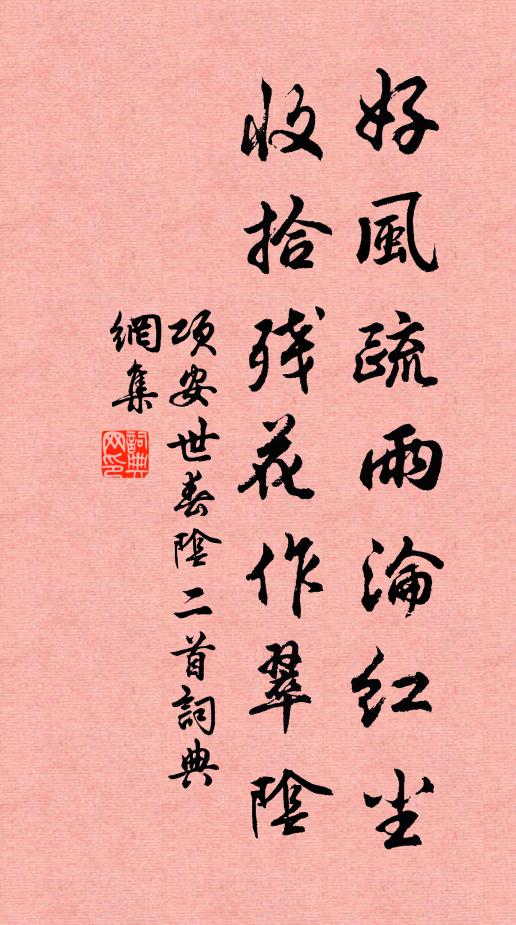 好風疏雨淪紅尘
收拾残花作翠陰
项安世春陰二首詞典
網集
詞典网印